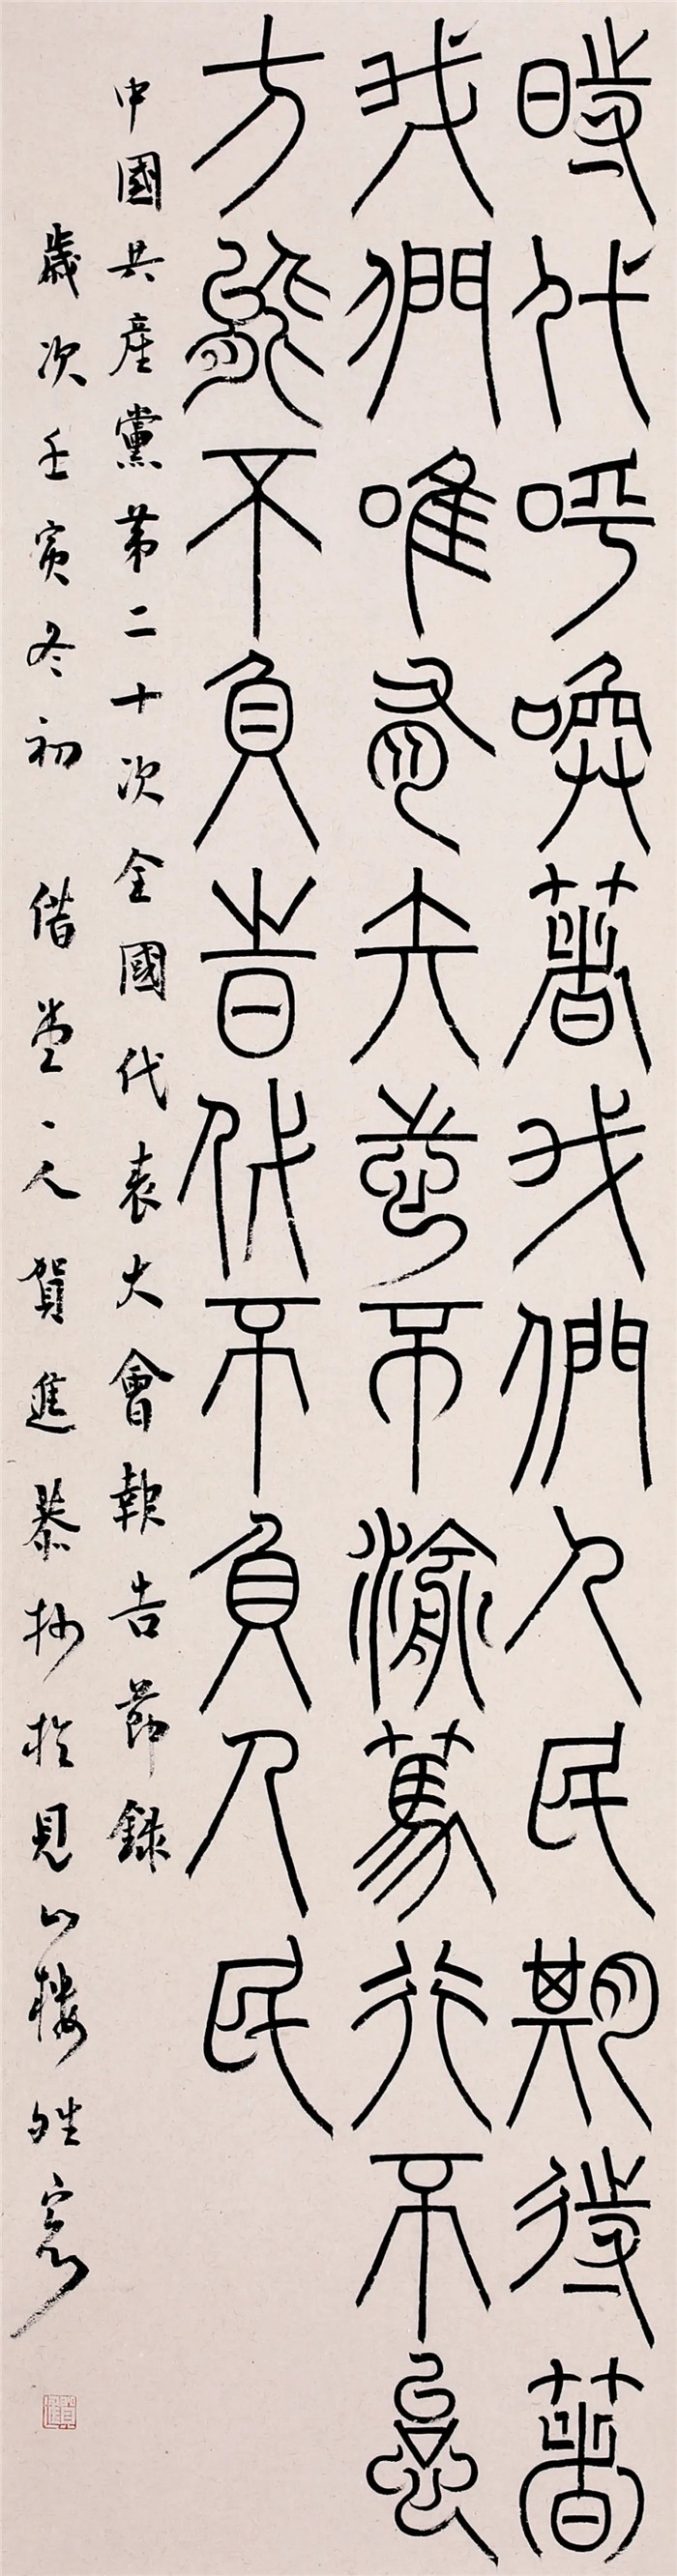 時代呼喚著我們人民期待著
我們唯有矢志不渝篤行不怠
方能不負時代不負人民
中國共產黨第二十次全國代表大會報告節錄
歲次壬寅冬初 借堂〻人賀進恭抄於見山樓

賀進